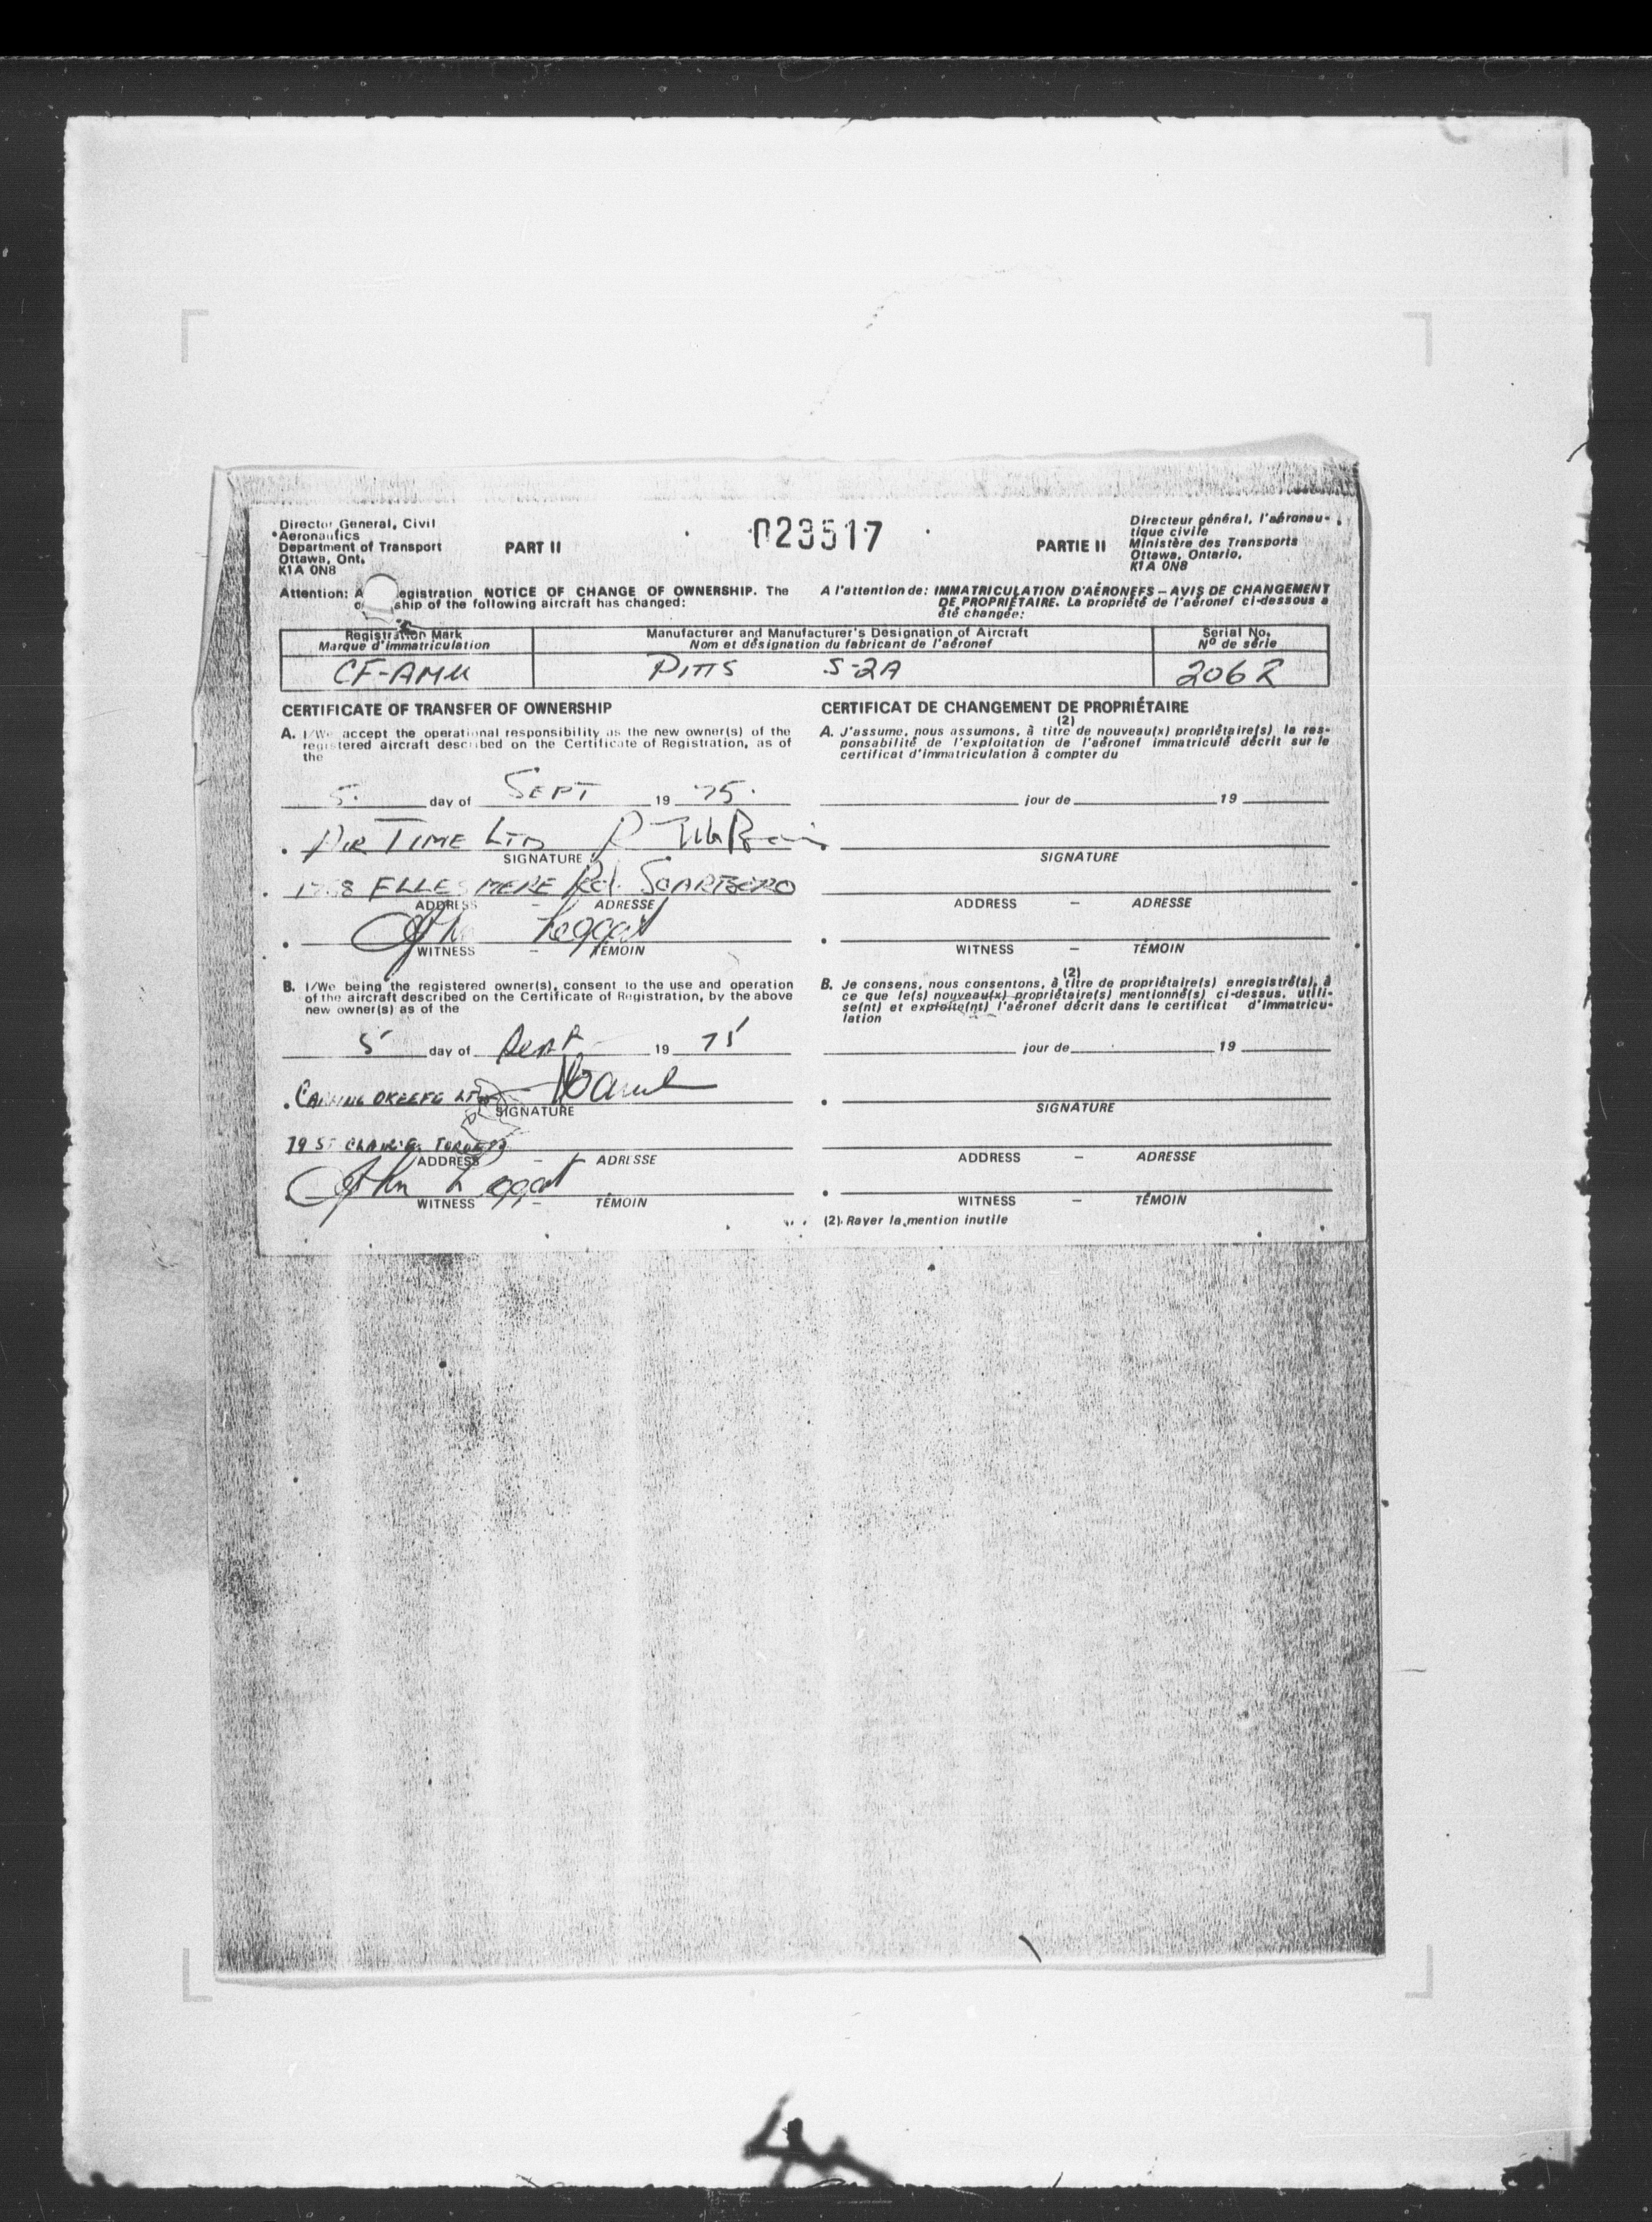 Director General, Civil
Aeronautics
Department of Transport
Ottawa, Ont.
K1A 0N8
PART II
023517
PARTIE II
Directeur général, l'aéronau-
tique civile
Ministère des Transports
Ottawa, Ontario.
K1A 0N8
Attention: A egistration NOTICE OF CHANGE OF OWNERSHIP. The
ship of the following aircraft has changed:
A l'attention de: IMMATRICULATION D'AÉRONEFS – AVIS DE CHANGEMENT
DE PROPRIÉTAIRE. La propriété de l'aéronef ci-dessous a
été changée:
Registration Mark
Marque d'immatriculation
Manufacturer and Manufacturer's Designation of Aircraft
Nom et désignation du fabricant de l'aéronef
Serial No.
Nº de série
CF-AMU PITTS S-2A 2062
CERTIFICATE OF TRANSFER OF OWNERSHIP
A. I/We accept the operational responsibility as the new owner(s) of the
registered aircraft described on the Certificate of Registration, as of
the
5. day of SEPT 19 75.
AIR TIME LTD
SIGNATURE
ELLESMERE Rd. SCARBORO
ADDRESS – ADRESSE
John Leggat
WITNESS – TÉMOIN
B. I/We being the registered owner(s), consent to the use and operation
of the aircraft described on the Certificate of Registration, by the above
new owner(s) as of the
5 day of Sept 19 75
CARLING OKEEFE LTD
SIGNATURE
79 ST CLAIR E. TORONTO
ADDRESS – ADRESSE
John Leggat
WITNESS – TÉMOIN
CERTIFICAT DE CHANGEMENT DE PROPRIÉTAIRE
(2)
A. J'assume, nous assumons, à titre de nouveau(x) propriétaire(s) la res-
ponsabilité de l'exploitation de l'aéronef immatriculé décrit sur le
certificat d'immatriculation à compter du
jour de 19
SIGNATURE
ADDRESS – ADRESSE
WITNESS – TÉMOIN
(2)
B. Je consens, nous consentons, à titre de propriétaire(s) enregistré(s), à
ce que le(s) nouveau(x) propriétaire(s) mentionné(s) ci-dessus, utili-
se(nt) et exploite(nt) l'aéronef décrit dans le certificat d'immatricu-
lation
jour de 19
SIGNATURE
ADDRESS – ADRESSE
WITNESS – TÉMOIN
(2) Rayer la mention inutile